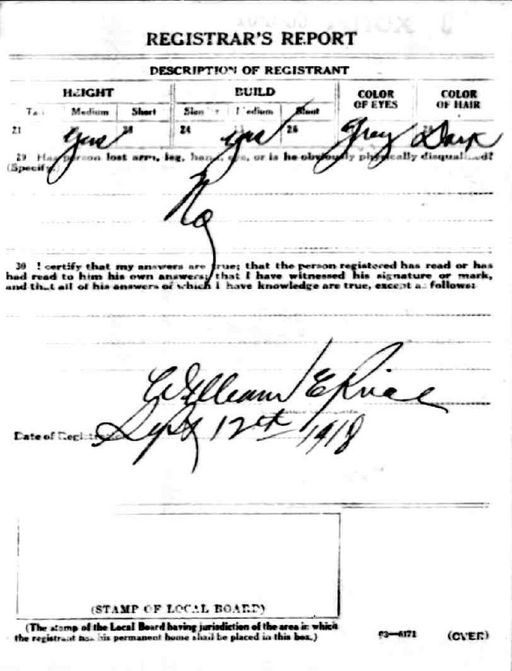 REGISTRAR'S REPORT
DESCRIPTION OF REGISTRANT
HEIGHT BUILD COLOR OF EYES COLOR OF HAIR
Medium Short Medium Stout
21 24 26
yes yes Gray Dark
29 Has person lost arm, leg, hand, eye, or is he obviously physically disqualified?
(Specify.)
No
30 I certify that my answers are true; that the person registered has read or has
had read to him his own answers; that I have witnessed his signature or mark,
and that all of his answers of which I have knowledge are true, except as follows:
William E Price
Date of Registration Sept 12th 1918
(STAMP OF LOCAL BOARD)
(The stamp of the Local Board having jurisdiction of the area in which
the registrant has his permanent home shall be placed in this box.)
03—6171 (OVER)